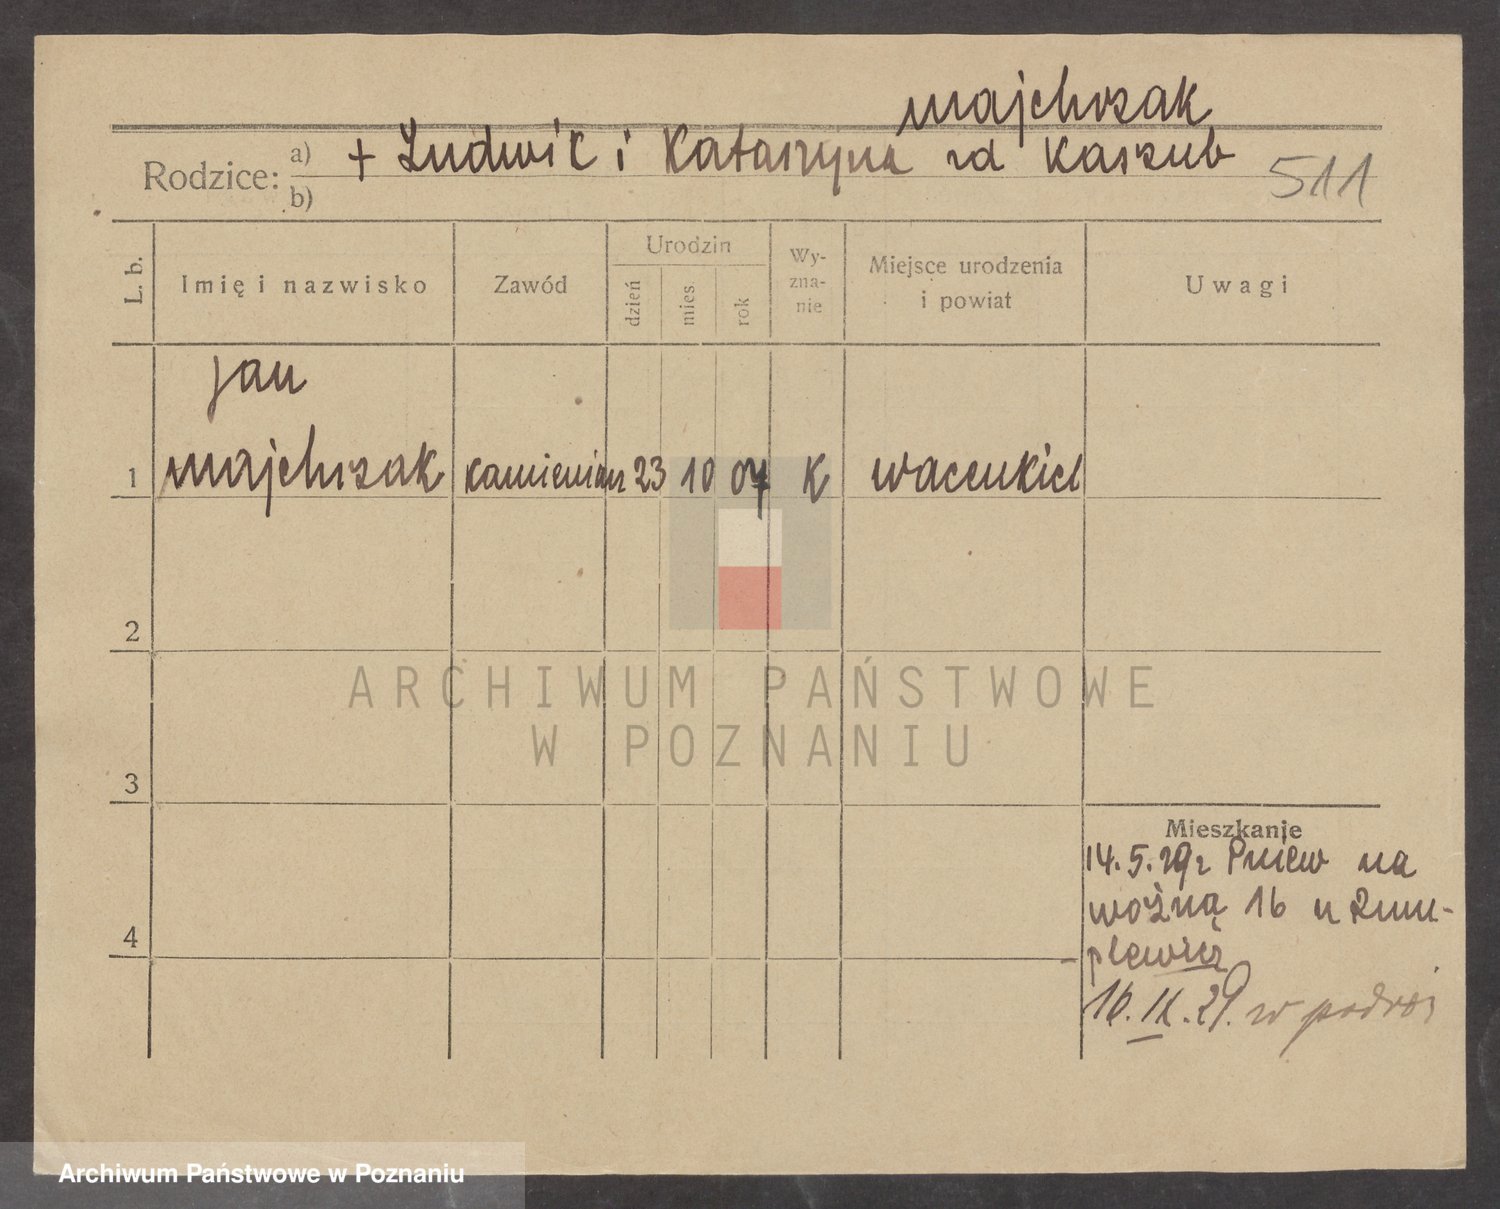 majchrzak
Rodzice: a) + Ludwik i Katarzyna zd Kaszub
b)
511
L. b.
Imię i nazwisko
Zawód
Urodzin
dzień
mies.
rok
Wy-
zna-
nie
Miejsce urodzenia
i powiat
Uwagi
Jan
1 majchrzak kamieniarz 23 10 07 K
2
3
4
Mieszkanie
14.5.29r Pniew na
woźną 16 u
16.IX.29. w podróż
ARCHIWUM PAŃSTWOWE
W POZNANIU
Archiwum Państwowe w Poznaniu